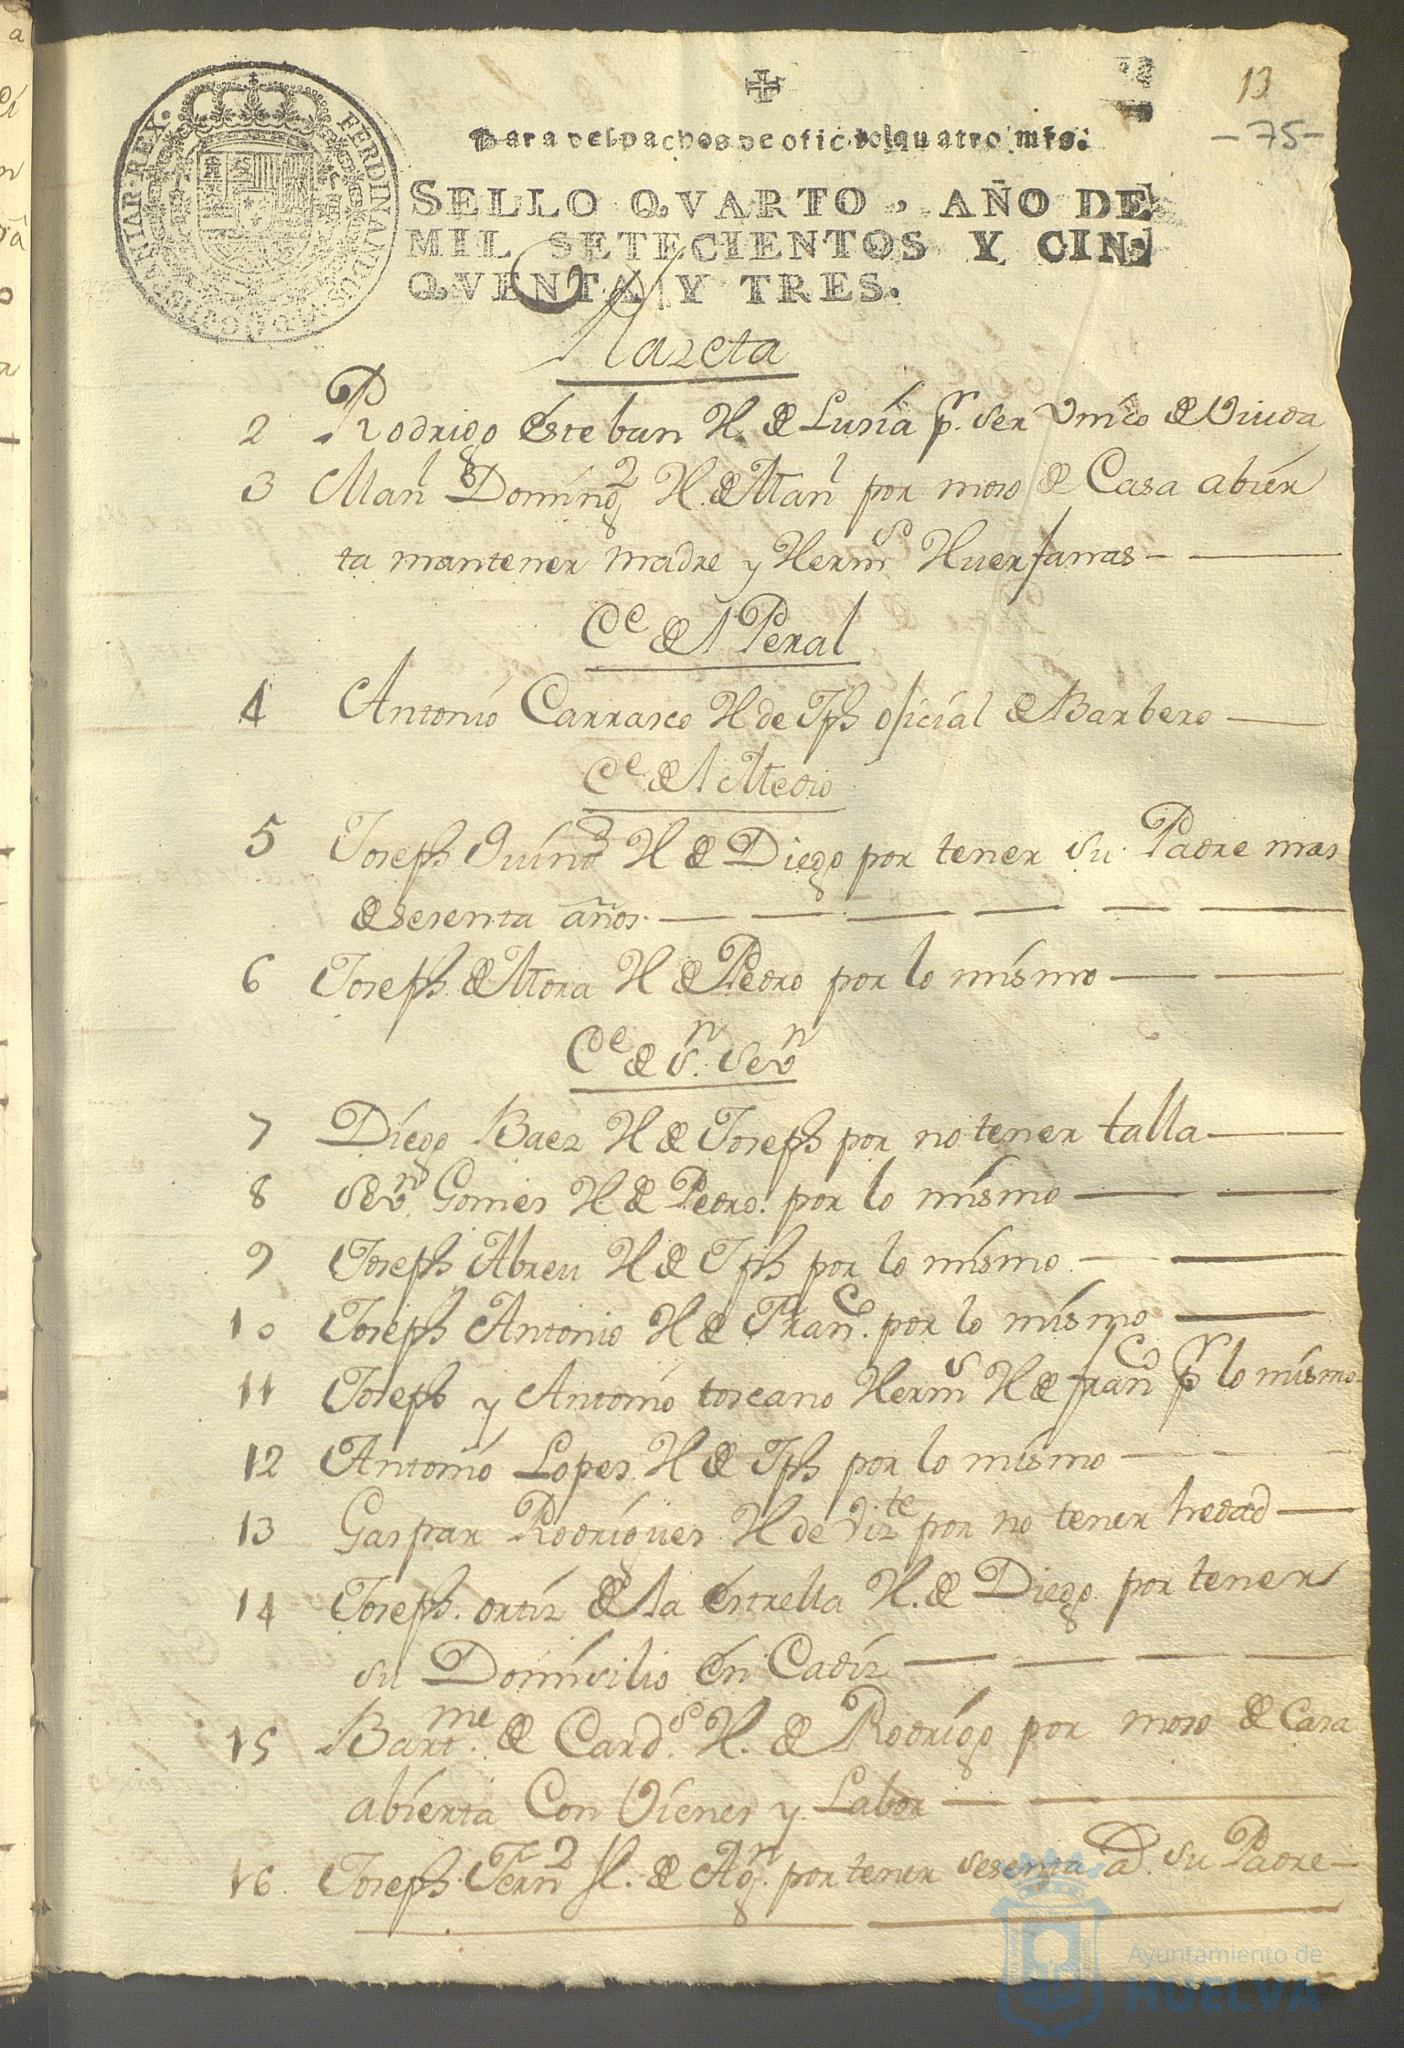 13
- 75 -
Para despachos de oficio quatro mrs.
SELLO QVARTO, AÑO DE
MIL SETECIENTOS Y CIN-
QVENTA Y TRES.
FERDINANDUS
REX
Razeta
2 Rodrigo Esteban H. de Lusia pr. ser Vnico de Viuda
3 Manl Domingz H. de Manl por moso de Casa abier
ta mantener madre y Herms Huerfanas
Ce del Peral
4 Antonio Carrasco H de Jph oficial de Barbero
Ce del Medio
5 Joseph Quino H de Diego por tener su Padre mas
de sesenta años
6 Joseph de Mora H de Pedro por lo mismo
Ce de Sn. Sevn
7 Diego Baez H de Joseph por no tener talla
8 Sevn. Gomes H de Pedro. por lo mismo
9 Joseph Abreu H de Jph por lo mismo
10 Joseph Antonio H de Franco. por lo mismo
11 Joseph y Antonio toscano Herms H de franco pr lo mismo
12 Antonio Lopes H de Jph por lo mismo
13 Gaspar Rodrigues H de Vizte por no tener hedad
14 Joseph. ortiz de la estrella H. de Diego por tener
su Domisilio en Cadiz
15 Bartme. de Cards. H. de Rodrigo por moso de Casa
abierta Con Vienes y Labor
16 Joseph Fernz H. de Agn. por tener sesenta a. su Padre
Ayuntamiento de
HUELVA